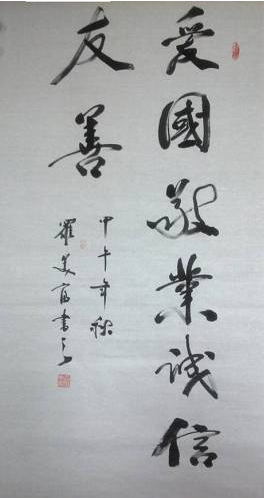 愛國敬業誠信
友善
甲午年秋
羅美富書之